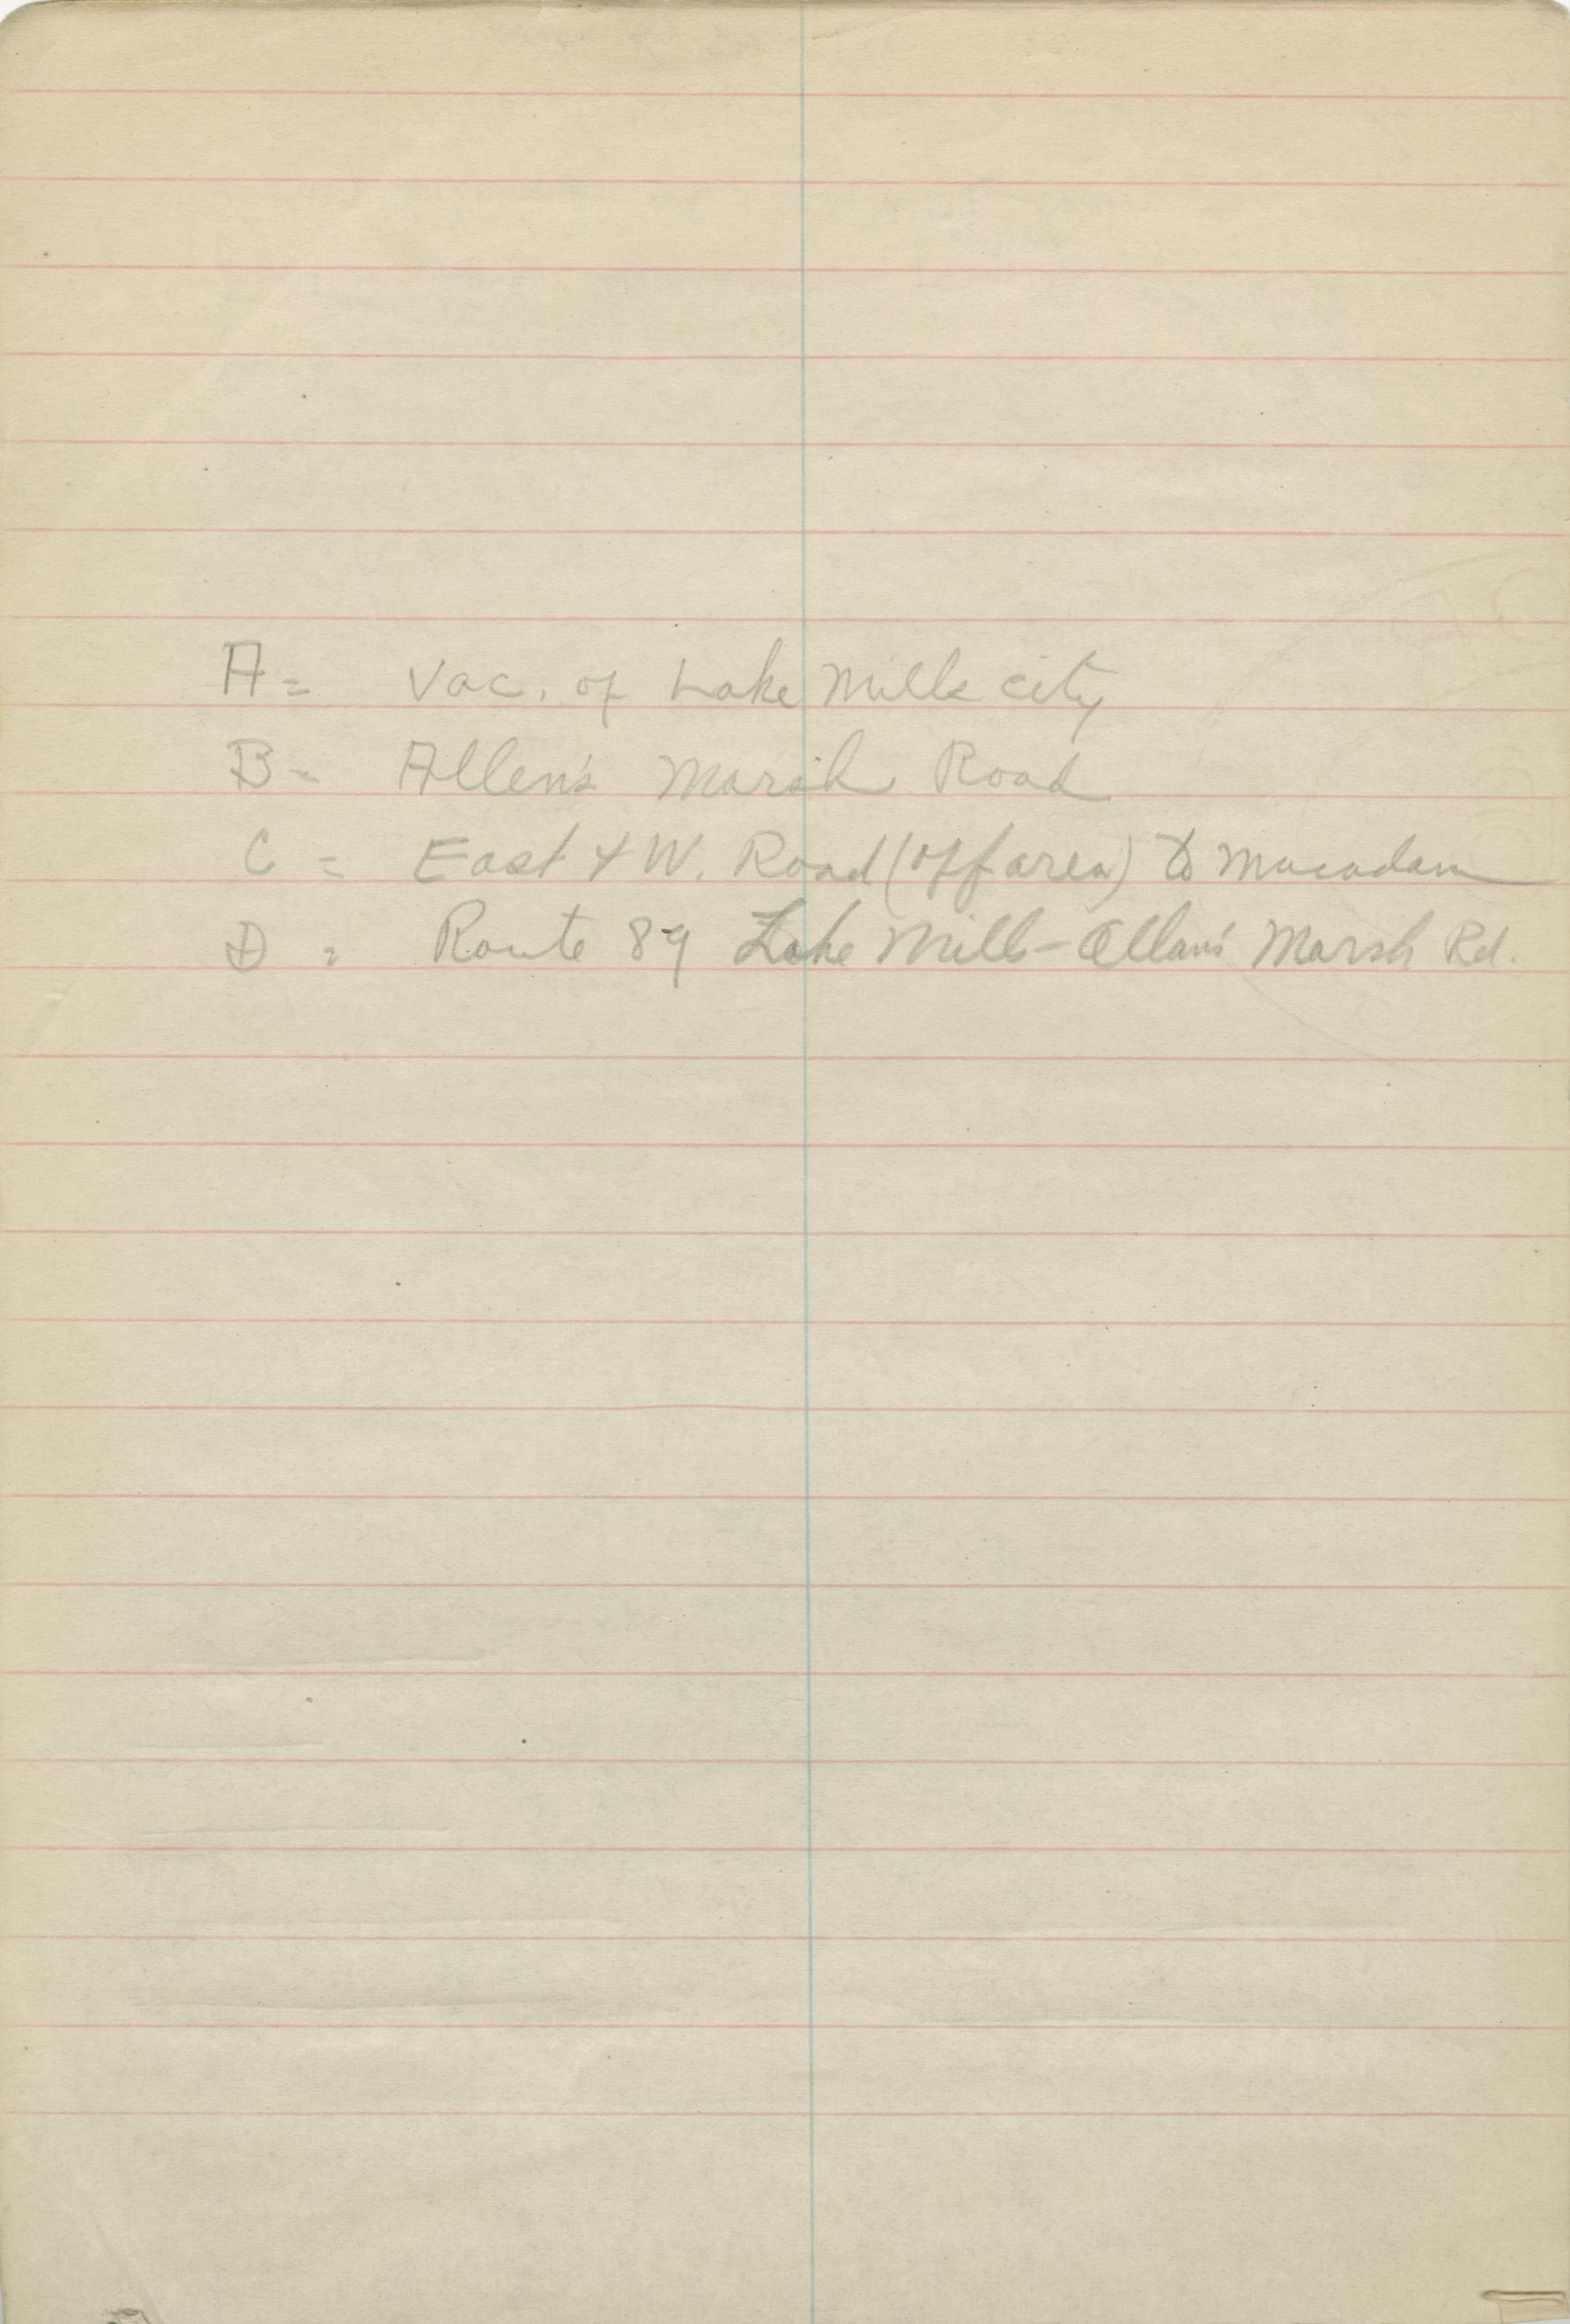 A = Vac. of Lake Mills city
B = Allen's Marsh Road
C = East & W. Road (off area) to Macadam
D = Route 89 Lake Mills - Allan's Marsh Rd.